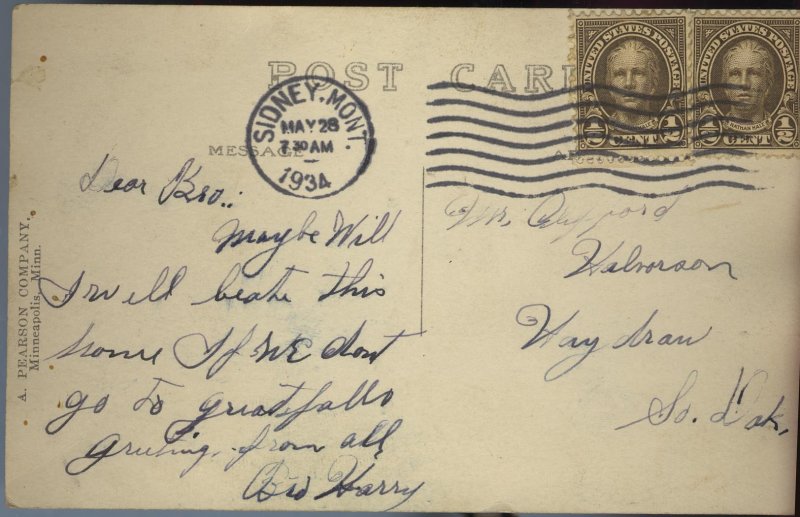 POST CARD
SIDNEY, MONT.
MAY 28
7 30 AM
1934
UNITED STATES POSTAGE
NATHAN HALE
1/2 CENT 1/2
UNITED STATES POSTAGE
NATHAN HALE
1/2 CENT 1/2
MESSAGE
Dear Bro.:
Maybe Will
I will beate this
home If WE dont
go to greatfalls
greeting. from all
Bro Harry
Mr.
Halvorson
Haydraw
So. Dak.
A. PEARSON COMPANY,
Minneapolis, Minn.